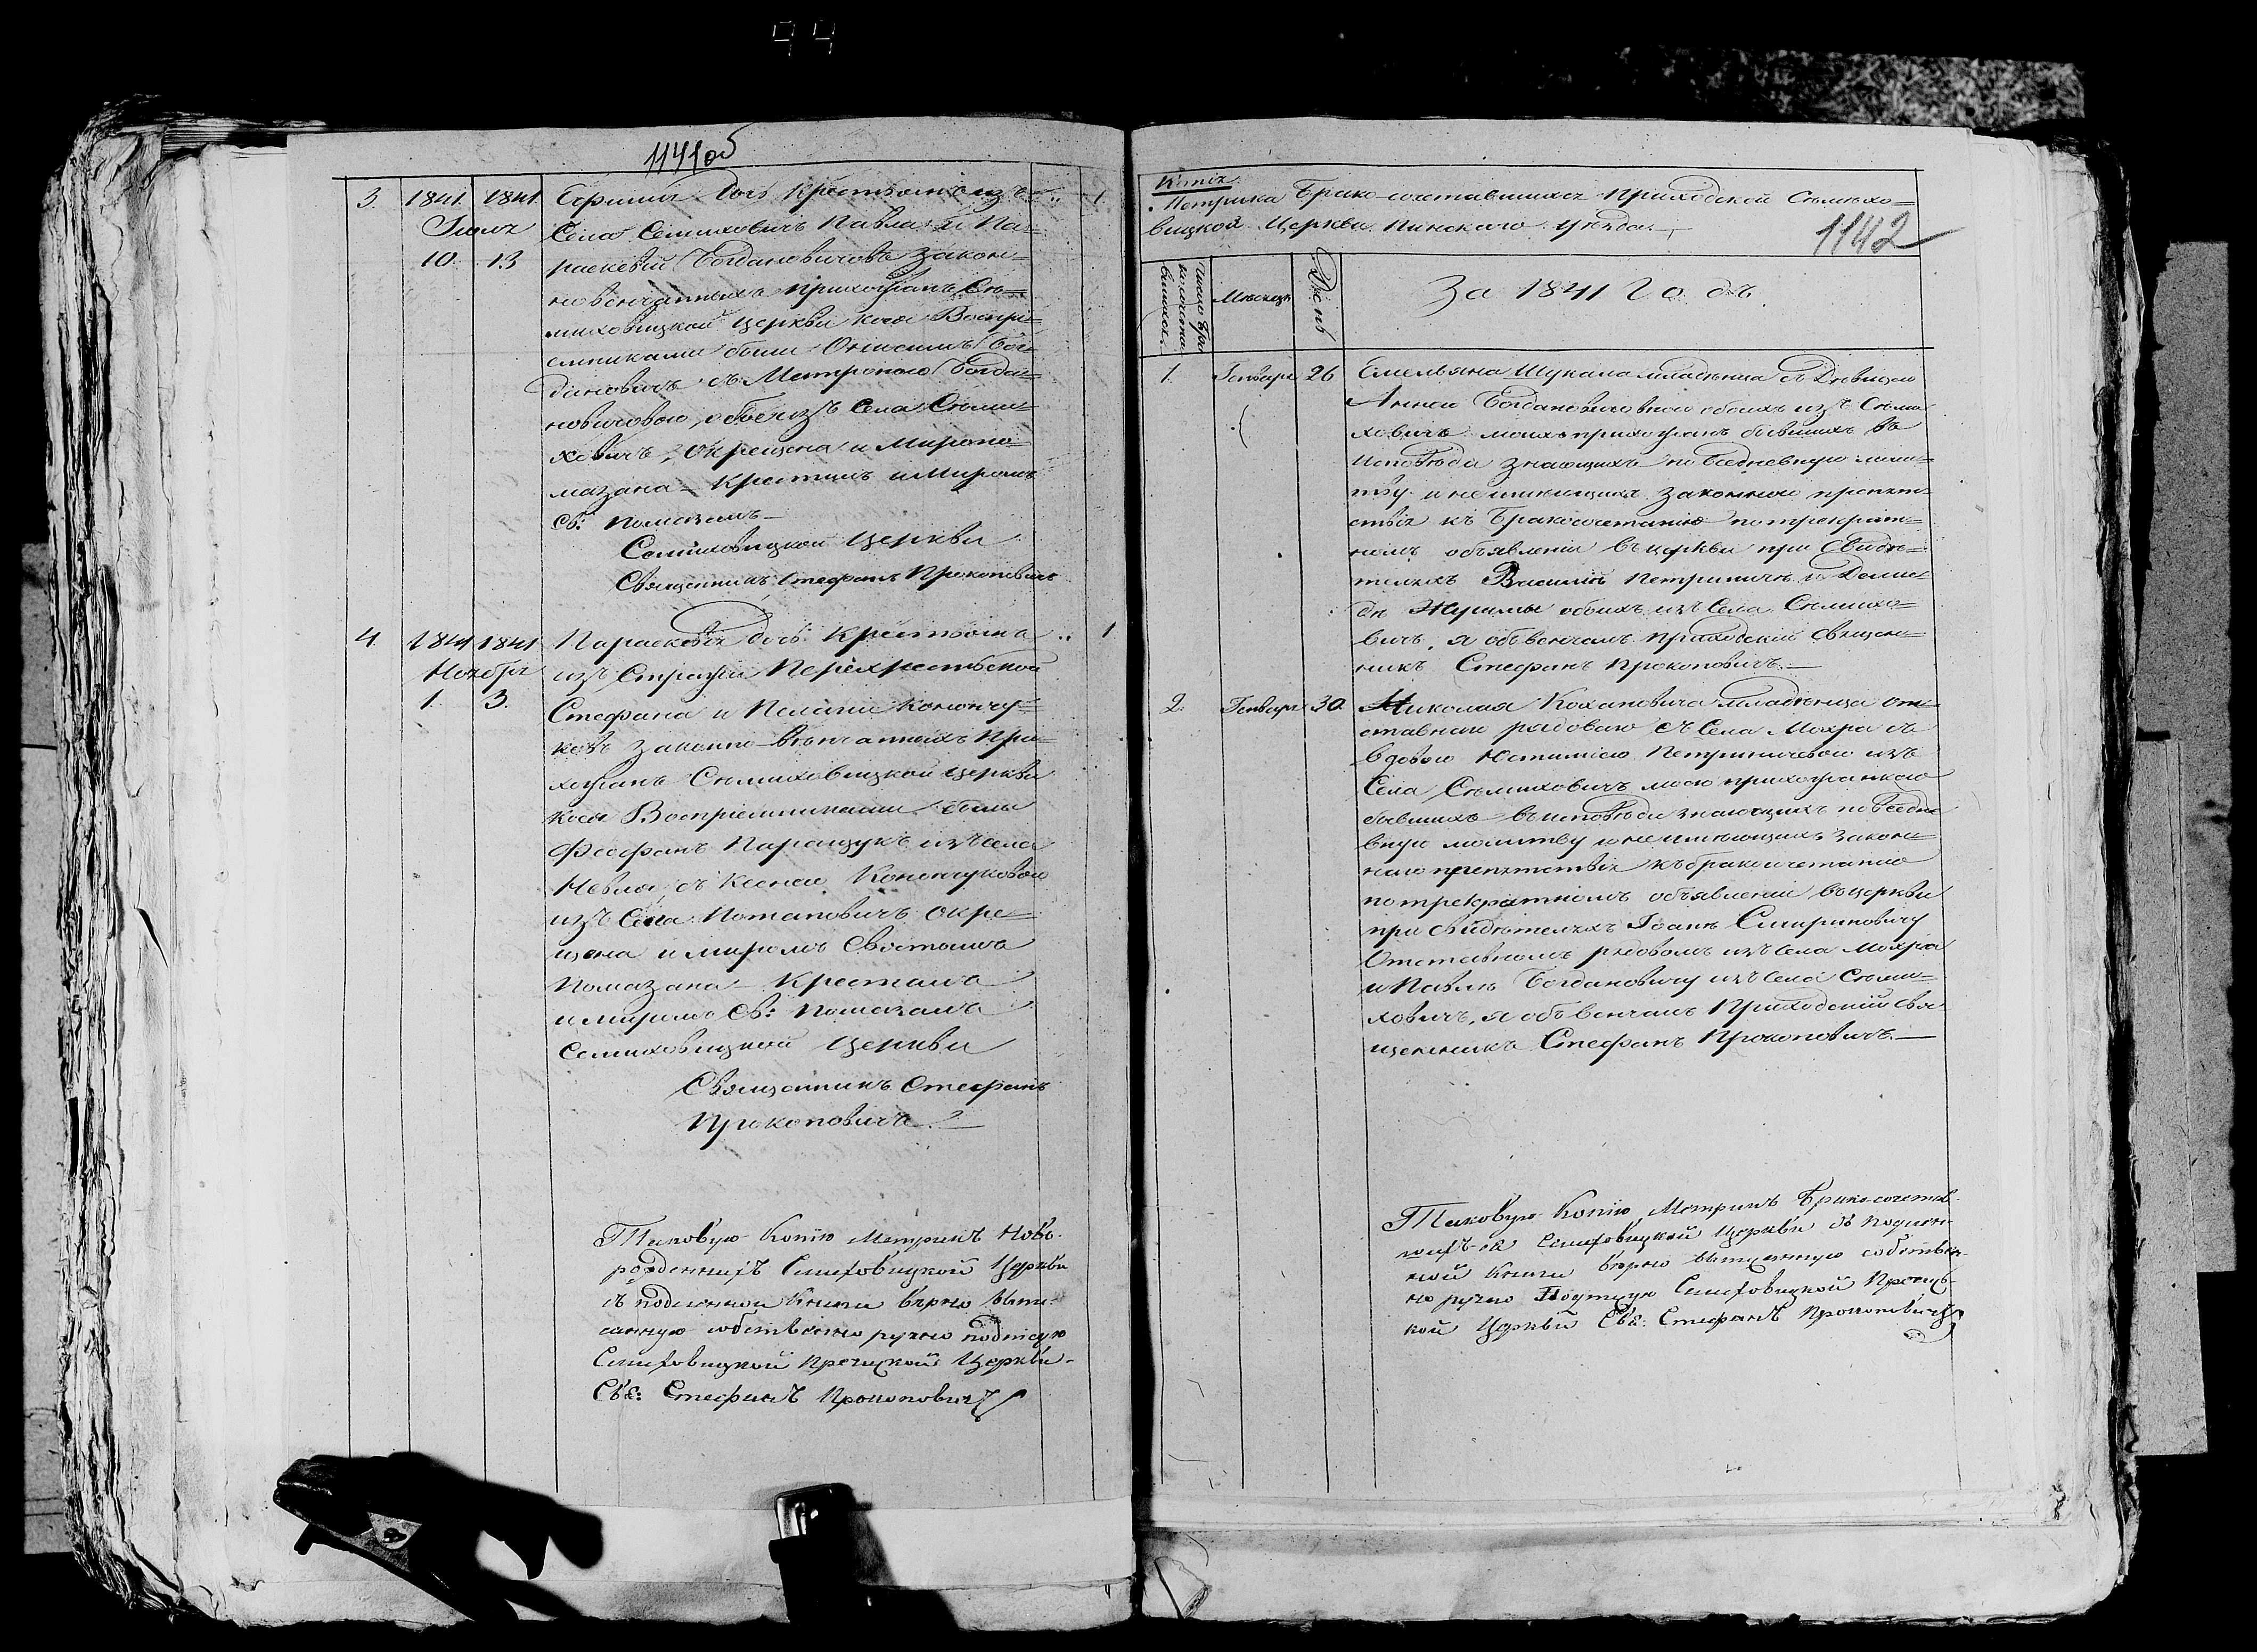 94
1141об
3. 1841. 1841. Дочь Крестьянъ изъ .. 1
Іюля Села Семиховичъ Павла и Па=
10. 13 раскевіи Богдановичовъ Закон=
но венчанныхъ прихожанъ Сѣ=
миховицкой Церкви коея Воспрі=
емниками были Онисимъ Бог=
дановичъ съ Богда=
новичовою, обоеизъ Села Сѣми=
ховичъ, Окрещена и Миропо=
мазана – Крестилъ и Миромъ
Св: Помазалъ –
Семиховицкой Церкви
Священникъ Стефанъ Прокоповичъ
4. 1841 1841 Параскевія дочь Крестьянъ .. 1
Ноября изъ Стражи
1. 3. Стефана и Пелагіи Конончу=
ковъ законно-вѣнчанныхъ При=
хожанъ Сѣмиховицкой Церкви
коея Воспріемниками были
Феофанъ Паращукъ изъ села
Невля, съ Ксеніею Конончуковою
изъ Села Потаповичъ Окре=
щена и миромъ Святымъ
Помазана – Крестилъ
и миромъ Св: Помазалъ
Семиховицкой Церкви
Священникъ Стефанъ
Прокоповичъ. –
Таковую Копію Метрикъ Ново-
рожденныхъ Семиховицкой Церкви
съ подлинной Книги вѣрно выпи-
санную собственно ручно подписую
Семиховицкой Пречиской Церкви-
Свя: Стефанъ Прокоповичъ
Копія.
Метрика Брако-сочетавшихся Приходской Сѣмихо=
вицкой Церкви Пинскаго Уѣзда.
1142
Число Бра
косочета
вшихся.
Мѣсяцъ
День
За 1841 Годъ.
1. Генваря 26 Емельяна Шукала младенца съ Дѣвицею
Анною Богдановичовною обоихъ изъ Сѣми
ховичъ моихъ прихожанъ бывшихъ въ
Исповѣди знающихъ повседневную моли=
тву и неимеющихъ законнаго препят=
ствія къ Бракосочетанію потрекрат=
номъ объявленіи въ церкви при Свидѣ=
теляхъ Василіи Петриничѣ и Деми=
дѣ Журимы обоихъ изъ Села Сѣмихо=
вичъ, я объвенчалъ Приходскій Священ=
никъ Стефанъ Прокоповичъ. –
2. Генваря 30. Николая Кохановича младенца от=
ставнаго рядоваго съ Села Мохра съ
вдовою Юстиніею Петриничовою изъ
Села Сѣмиховичъ моею прихожанкою
бывшихъ въ исповѣди знающихъ повседне
вную молитву и неимеющихъ закон=
наго препятствія къ бракосочетанію
потрекратномъ объявленіи въ церкви
при Свидѣтеляхъ Іоанѣ Спириновичу
Отставномъ рядовомъ изъ Села Мохра
и Павлѣ Богдановичу изъ Села Сѣми=
ховичъ, я объвенчалъ Приходскій Свя=
щенникъ Стефанъ Прокоповичъ. –
Таковую Копію Метрикъ Брако-сочетав-
шихъ-ся Семиховицкой Церкви съ подлин-
ной Книги вѣрно выписанную собствен-
но ручно Подписую Семиховицкой Пречис-
кой Церкви Свя: Стефанъ Прокоповичъ